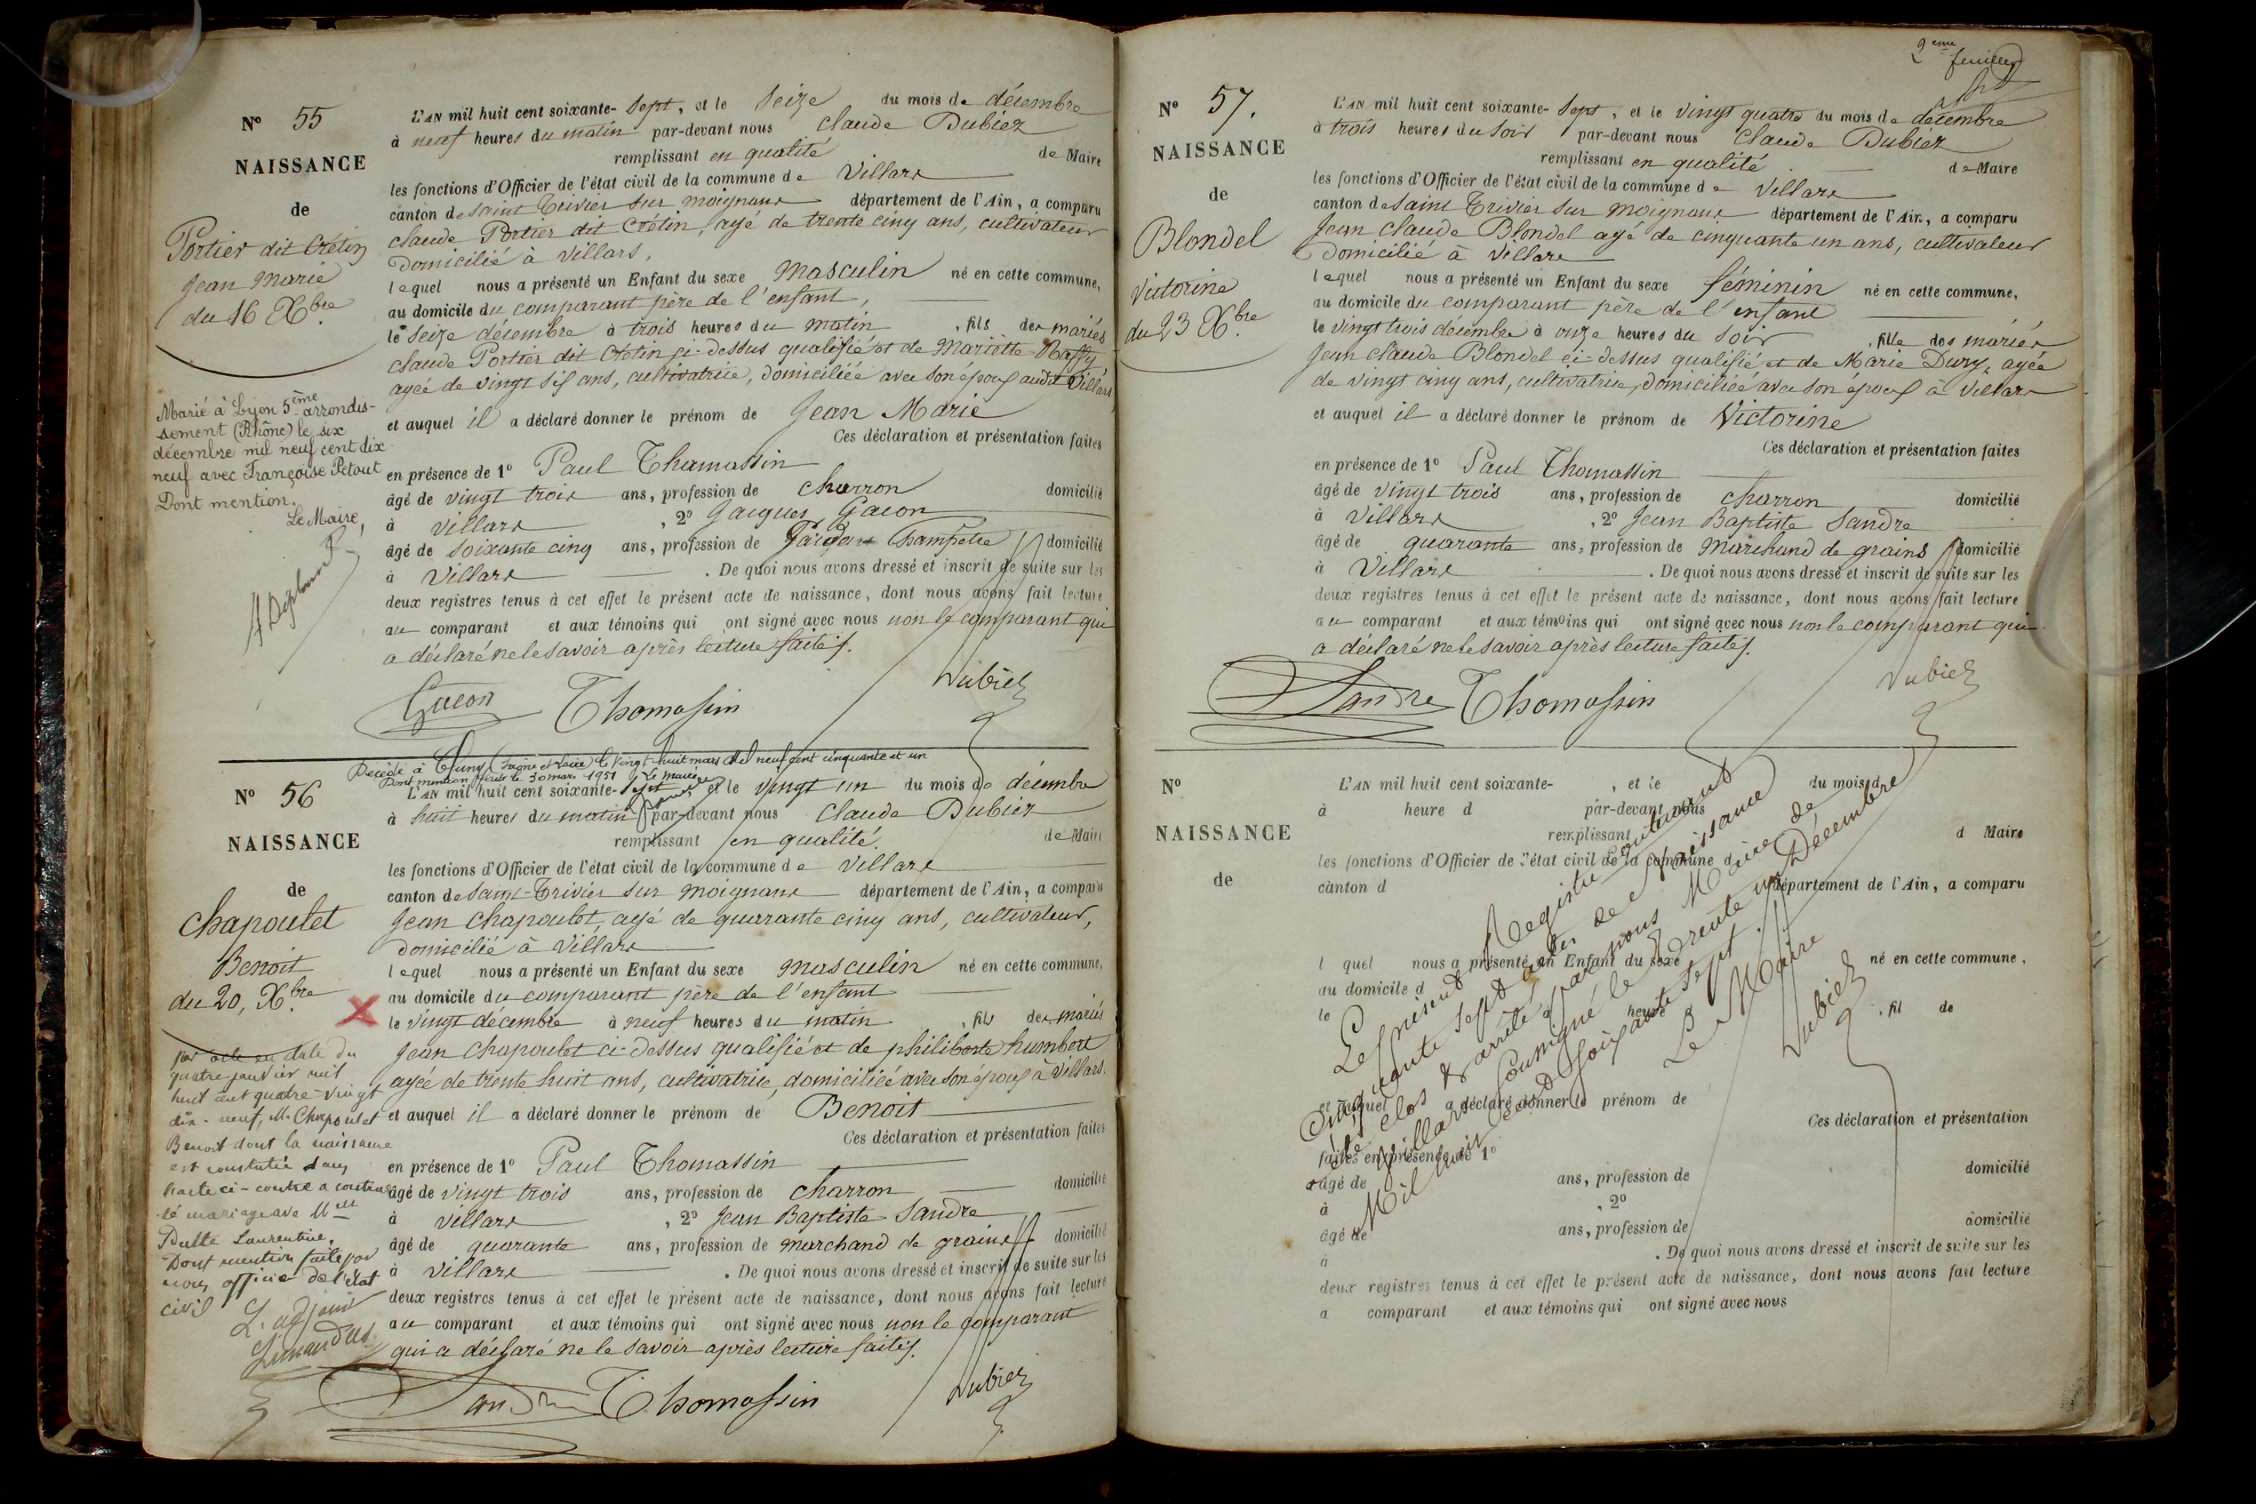 Nº 55
NAISSANCE
de
Portier dit Crétin
Jean Marie
du 16 Xbre
Marié à Lyon 5ème arrondis-
sement (Rhône) le six
décembre mil neuf cent dix
neuf avec Françoise Petout
Dont mention.
Le Maire,
L'AN mil huit cent soixante-sept, et le seize du mois de décembre
à neuf heures du matin par-devant nous Claude Dubiez
remplissant en qualité de Maire
les fonctions d'Officier de l'état civil de la commune de Villars
canton de saint Trivier sur moignans département de l'Ain, a comparu
claude Portier dit Crétin, agé de trente cinq ans, cultivateur
domicilié à Villars,
lequel nous a présenté un Enfant du sexe masculin né en cette commune,
au domicile du comparant père de l'enfant,
le seize décembre à trois heures du matin , fils des mariés
claude Portier dit Crétin ci-dessus qualifié et de Mariette Raffy
agée de vingt six ans, cultivatrice, domiciliée avec son époux audit Villars,
et auquel il a déclaré donner le prénom de Jean Marie
Ces déclaration et présentation faites
en présence de 1º Paul Thomassin
âgé de vingt trois ans, profession de charron domicilié
à Villars , 2º Jacques Gacon
âgé de soixante cinq ans, profession de Garde Champêtre domicilié
à Villars . De quoi nous avons dressé et inscrit de suite sur les
deux registres tenus à cet effet le présent acte de naissance, dont nous avons fait lecture
au comparant et aux témoins qui ont signé avec nous non le comparant qui
a déclaré ne le savoir après lecture faite.
Gacon Thomassin Dubiez
Décédé à Cluny (Saône et Loire) le vingt-huit mars mil neuf cent cinquante et un
Dont mention faite le 30 mars 1951 Le Maire
Nº 56
NAISSANCE
de
Chapoulet
Benoit
du 20, Xbre
par acte en date du
quatre janvier mil
huit cent quatre-vingt
dix-neuf, M. Chapoulet
Benoit dont la naissance
est constatée dans
l'acte ci-contre a contrac
té mariage avec Melle
Laurentine.
Dont mention faite par
nous officier de l'état
civil
L'adjoint
L'AN mil huit cent soixante-sept et le vingt un du mois de décembre
à huit heures du matin par-devant nous Claude Dubiez
remplissant en qualité de Maire
les fonctions d'Officier de l'état civil de la commune de Villars
canton de saint-Trivier sur moignans département de l'Ain, a comparu
Jean Chapoulet, agé de quarante cinq ans, cultivateur,
domicilié à Villars
lequel nous a présenté un Enfant du sexe masculin né en cette commune,
au domicile du comparant père de l'enfant
le vingt décembre à neuf heures du matin , fils des mariés
Jean Chapoulet ci-dessus qualifié et de philiberte humbert
agée de trente huit ans, cultivatrice, domiciliée avec son époux à Villars.
et auquel il a déclaré donner le prénom de Benoit
Ces déclaration et présentation faites
en présence de 1º Paul Thomassin
âgé de vingt trois ans, profession de charron domicilié
à Villars , 2º Jean Baptiste Sandre
âgé de quarante ans, profession de marchand de grains domicilié
à Villars . De quoi nous avons dressé et inscrit de suite sur les
deux registres tenus à cet effet le présent acte de naissance, dont nous avons fait lecture
au comparant et aux témoins qui ont signé avec nous non le comparant
qui a déclaré ne le savoir après lecture faite.
Sandre Thomassin Dubiez
2eme feuillet
Nº 57.
NAISSANCE
de
Blondel
Victorine
du 23 Xbre
L'AN mil huit cent soixante-sept, et le vingt quatre du mois de décembre
à trois heures du soir par-devant nous Claude Dubiez
remplissant en qualité de Maire
les fonctions d'Officier de l'état civil de la commune de Villars
canton de saint Trivier sur moignans département de l'Ain, a comparu
Jean Claude Blondel agé de cinquante un ans, cultivateur
domicilié à Villars
lequel nous a présenté un Enfant du sexe féminin né en cette commune,
au domicile du comparant père de l'enfant
le vingt trois décembre à onze heures du soir , fille des mariés
Jean Claude Blondel ci-dessus qualifié et de Marie Dury, agée
de vingt cinq ans, cultivatrice, domiciliée avec son époux à Villars
et auquel il a déclaré donner le prénom de Victorine
Ces déclaration et présentation faites
en présence de 1º Paul Thomassin
âgé de vingt trois ans, profession de charron domicilié
à Villars , 2º Jean Baptiste Sandre
âgé de quarante ans, profession de marchand de grains domicilié
à Villars . De quoi nous avons dressé et inscrit de suite sur les
deux registres tenus à cet effet le présent acte de naissance, dont nous avons fait lecture
au comparant et aux témoins qui ont signé avec nous non le comparant qui
a déclaré ne le savoir après lecture faite.
Sandre Thomassin Dubiez
Nº
NAISSANCE
de
L'AN mil huit cent soixante- , et le du mois d
à heure d par-devant nous
remplissant d Maire
les fonctions d'Officier de l'état civil de la commune d
canton d département de l'Ain, a comparu
l quel nous a présenté un Enfant du sexe né en cette commune,
au domicile d
le à heure , fil de
et auquel a déclaré donner le prénom de
Ces déclaration et présentation
faites en présence de 1º
âgé de ans, profession de domicilié
à , 2º
âgé de ans, profession de domicilié
à . De quoi nous avons dressé et inscrit de suite sur les
deux registres tenus à cet effet le présent acte de naissance, dont nous avons fait lecture
a comparant et aux témoins qui ont signé avec nous
Le présent Registre contenant
Cinquante sept actes de Naissance
été clos & arrêté par nous Maire de
Villars soussigné le trente un Décembre
Mil huit cent soixante sept.
Le Maire
Dubiez